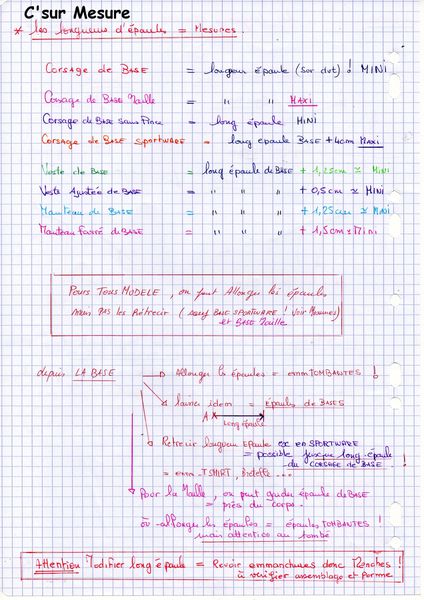 C'sur Mesure
* les longueurs d'épaules = Mesures.
Corsage de Base = longueur épaule (sur dvt) ! MINI
Corsage de Base Maille = " " MAXI
Corsage de Base sans Pince = long épaule MINI
Corsage de Base sportware = long épaule Base + 4cm MAXI
Veste de Base = long épaule de Base + 1,25cm ≃ MINI
Veste Ajustée de Base = " " + 0,5cm ≃ MINI
Manteau de Base = " " + 1,25cm ≃ Mini
Manteau Fourré de Base = " " + 1,5cm ≃ Mini
Pours Tous MODELE, on peut Allonger les épaules
mais pas les Rétrecir (sauf Base SPORTWARE ! Voir Mesures)
et Base Maille
depuis LA BASE → Allonger les épaules = emm TOMBANTES !
laisser idem = épaules de BASES
A
long épaule
Retrecir longueur Epaule ex en SPORTWARE
= possible jusque long. épaule
du CORSAGE de BASE. !
= emm. TSHIRT, Bretelle...
Pour la Maille, on peut garder épaule de Base
= près du corps.
où allonger les épaules = épaules TOMBANTES !
mais attention au tombé
Attention Modifier long épaule = Revoir emmanchures donc Manches !
à vérifier assemblage et forme